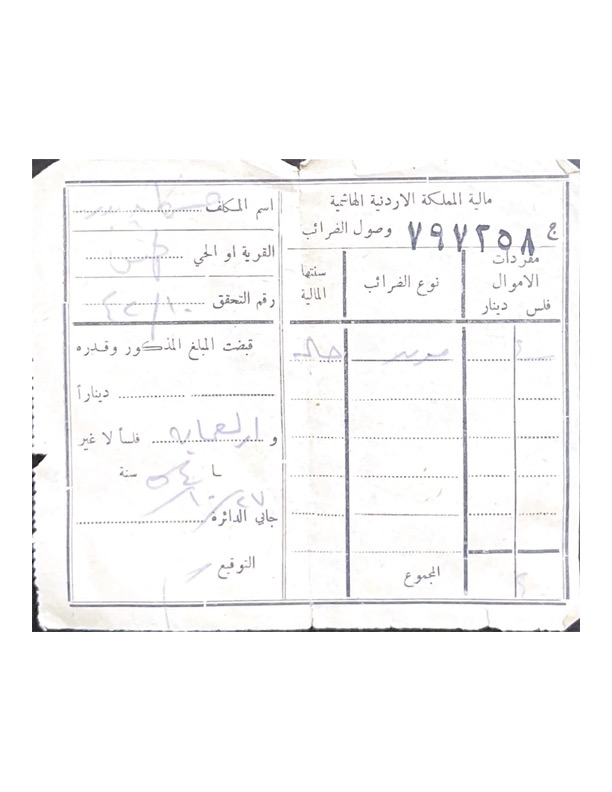 مالية المملكة الاردنية الهاشمية
وصول الضرائب
ع ٧٩٧٢٥٨
مفردات الاموال
فلس دينار
نوع الضرائب
سنتها المالية
المجموع
اسم المكلف
القرية او الحي
رقم التحقق ١٠/
قبضت المبلغ المذكور وقدره
ديناراً
و اربعماية فلساً لا غير
سنة
جابي الدائرة
التوقيع